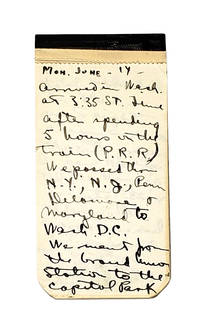 Mon. June - 14 -
arrived in Wash.
at 3:35 ST. time
after spending
5 hours on the
train (P.R.R)
We passed thru
N.Y., N.J., Penn
Delaware &
Maryland to
Wash D.C.
We went from
the Grand Union
Station to the
Capitol Park